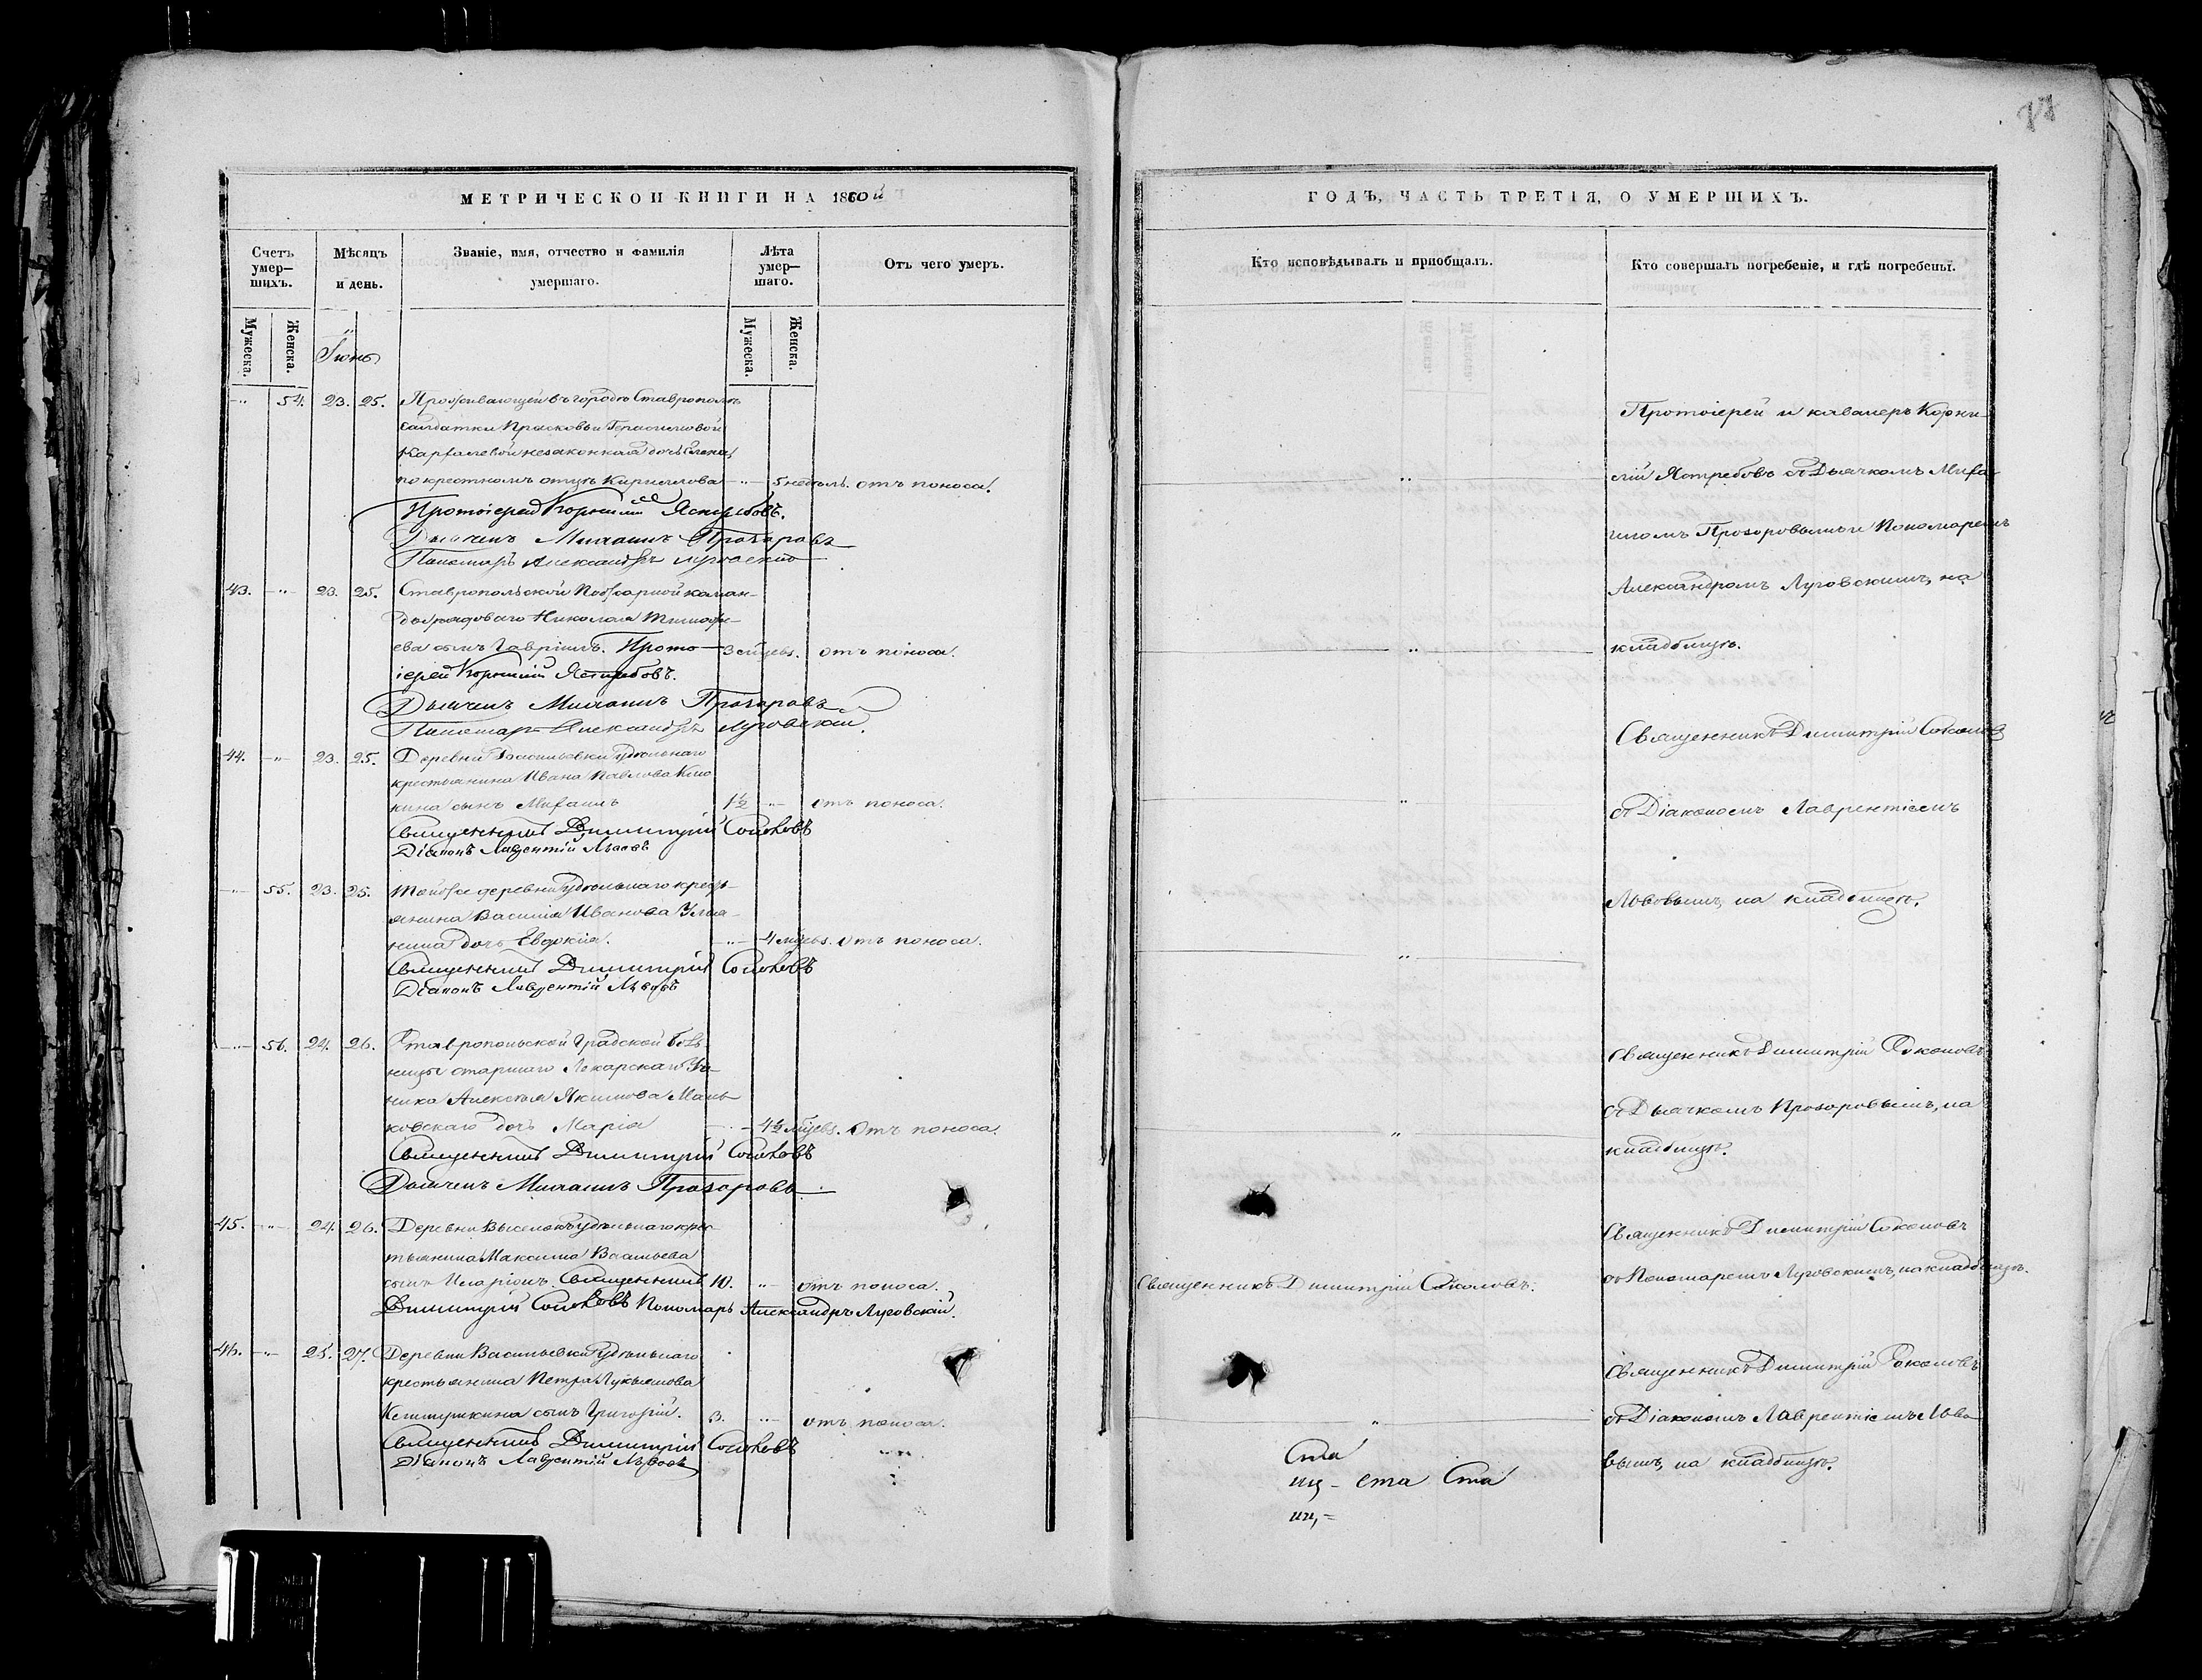 МЕТРИЧЕСКОЙ КНИГИ НА 1860й
Счетъ умер-шихъ.
Мѣсяцъ и день.
Званіе, имя, отчество и фамилія умершаго.
Лѣта умер-шаго.
Отъ чего умеръ.
Мужеска.
Женска.
Мужеска.
Женска.
Іюнь
54. 23. 25. Проживающей въ городѣ Ставрополѣ
солдатки Прасковьи Герасимовой
незаконная дочь Елена,
по крестномъ отцѣ Кириллова 5 недѣль. отъ поноса.
Протоіерей Корнилій Ястребовъ.
Дьячекъ Михаилъ Прозоровъ
Пономарь Александръ Луговскій
43. 23. 25. Ставропольской Пожарной коман-
ды рядоваго Николая Тимофѣ-
ева сынъ Гавріилъ. Прото- 3 мѣсцвъ. отъ поноса.
іерей Корнилій Ястребовъ.
Дьячекъ Михаилъ Прозоровъ
Пономарь Александръ Луговскій.
44. 23. 25. Деревни Васильевки удѣльнаго
крестьянина Ивана Павлова
сынъ Михаилъ 1½ отъ поноса.
Священникъ Димитрій Соколовъ
Діаконъ Лаврентій Львовъ
55. 23. 25. Той же деревни удѣльнаго кресть-
янина Василія Иванова
дочь Евдокія. 4 мѣсцвъ. отъ поноса.
Священникъ Димитрій Соколовъ
Діаконъ Лаврентій Львовъ
56. 24. 26. Ставропольской Градской боль-
ницы старшаго Лекарскаго Уче-
ника Алексѣя Якимова Мань-
ковскаго дочь Марія 4½ мѣсцвъ. отъ поноса.
Священникъ Димитрій Соколовъ
Дьячекъ Михаилъ Прозоровъ
45. 24. 26. Деревни Выселокъ удѣльнаго крес-
тьянина Максима Васильева
сынъ Иларіонъ. Священникъ 10. отъ поноса.
Димитрій Соколовъ Пономарь Александръ Луговскій.
46. 25. 27. Деревни Васильевки удѣльнаго
крестьянина Петра Лукьянова
сынъ Григорій. 3. отъ поноса.
Священникъ Димитрій Соколовъ
Діаконъ Лаврентій Львовъ
ГОДЪ, ЧАСТЬ ТРЕТІЯ, О УМЕРШИХЪ.
Кто исповѣдывалъ и пріобщалъ.
Кто совершалъ погребеніе, и гдѣ погребены.
Протоіерей и кавалеръ Корни-
лій Ястребовъ съ Дьячкомъ Миха-
иломъ Прозоровымъ и Пономаремъ
Александромъ Луговскимъ, на
кладбищѣ.
Священникъ Димитрій Соколовъ
съ Діакономъ Лаврентіемъ
Львовымъ, на кладбищѣ.
Священникъ Димитрій Соколовъ
съ Дьячкомъ Прозоровымъ, на
кладбищѣ.
Священникъ Димитрій Соколовъ
Священникъ Димитрій Соколовъ.
съ Пономаремъ Луговскимъ, на кладбищѣ.
Священникъ Димитрій Соколовъ
съ Діакономъ Лаврентіемъ Льво-
вымъ, на кладбищѣ.
Ста
иц- ста Ста